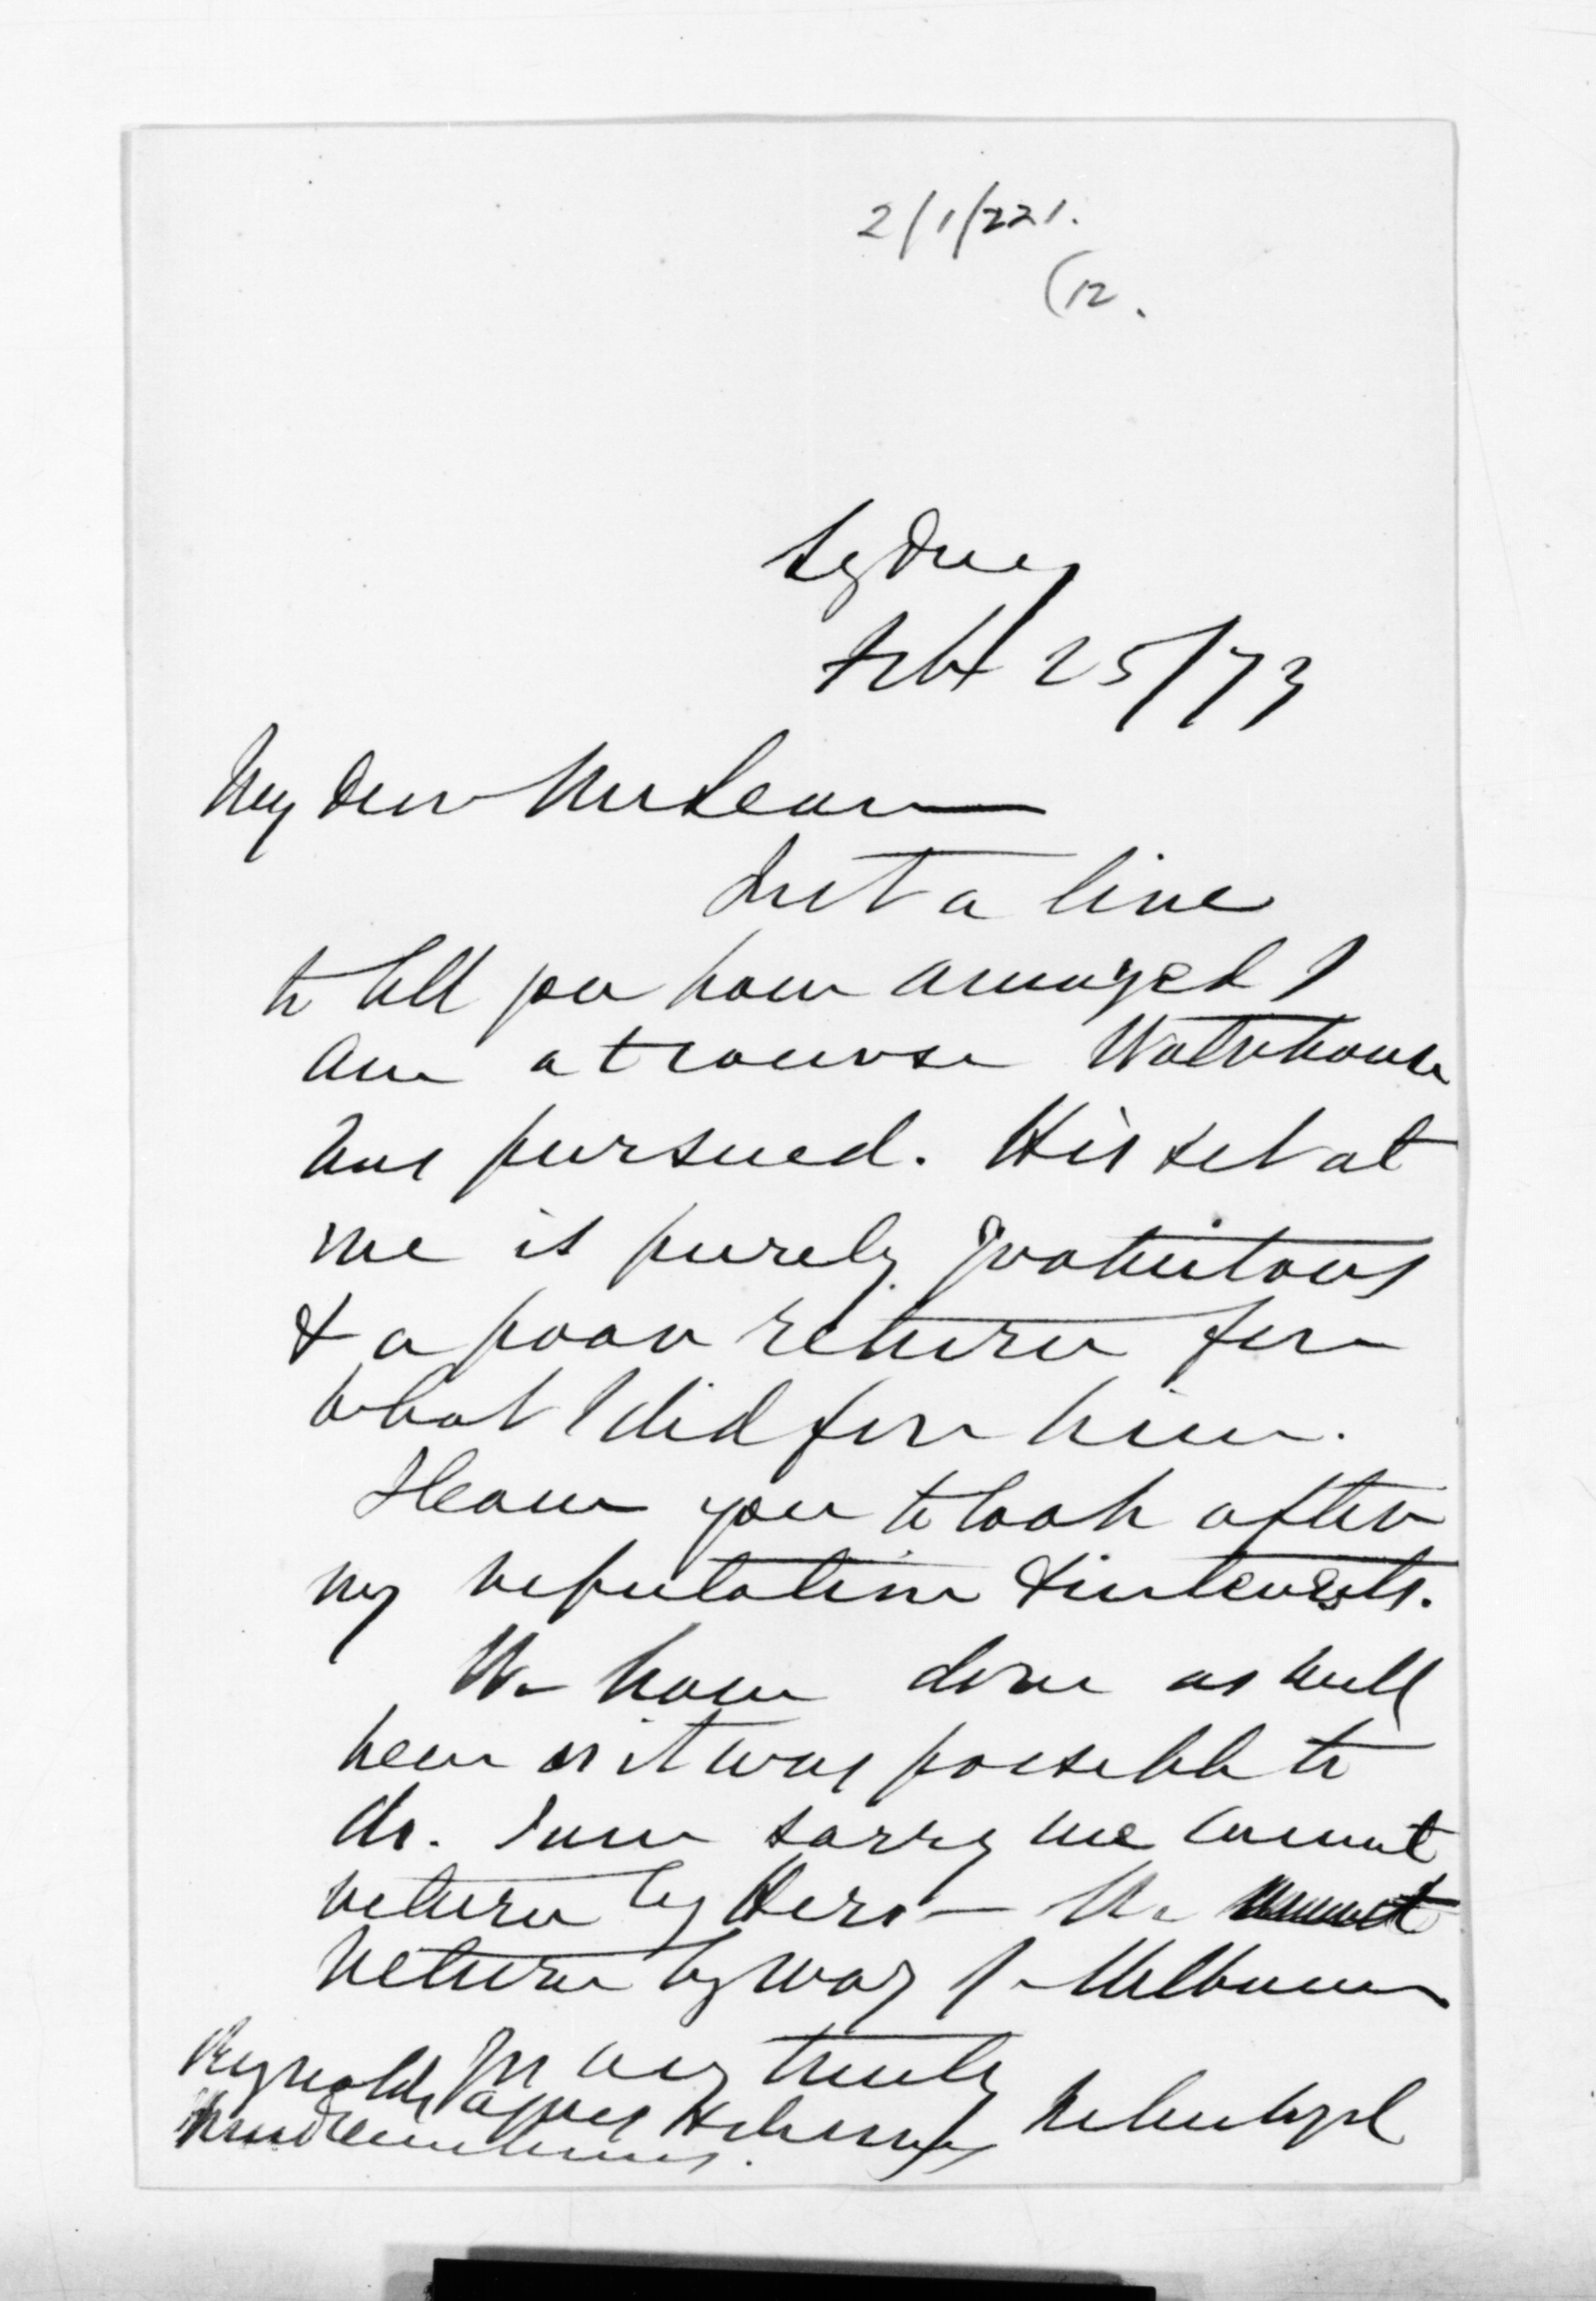 2/1/221.
(12.
Sydney
Feb 25/73
My dear McLean
Just a line
to tell you how annoyed I
am at course Waterhouse
has pursued. His set at
me is purely gratuitous
& a poor return for
what I did for him.
I leave you to look after
my reputation & interests.
We have done as well
here as it was possible to
do. I am sorry we cannot
return by Hero - We
return by way of Melbourne
Yrs very truly
Julius Vogel
Reynolds